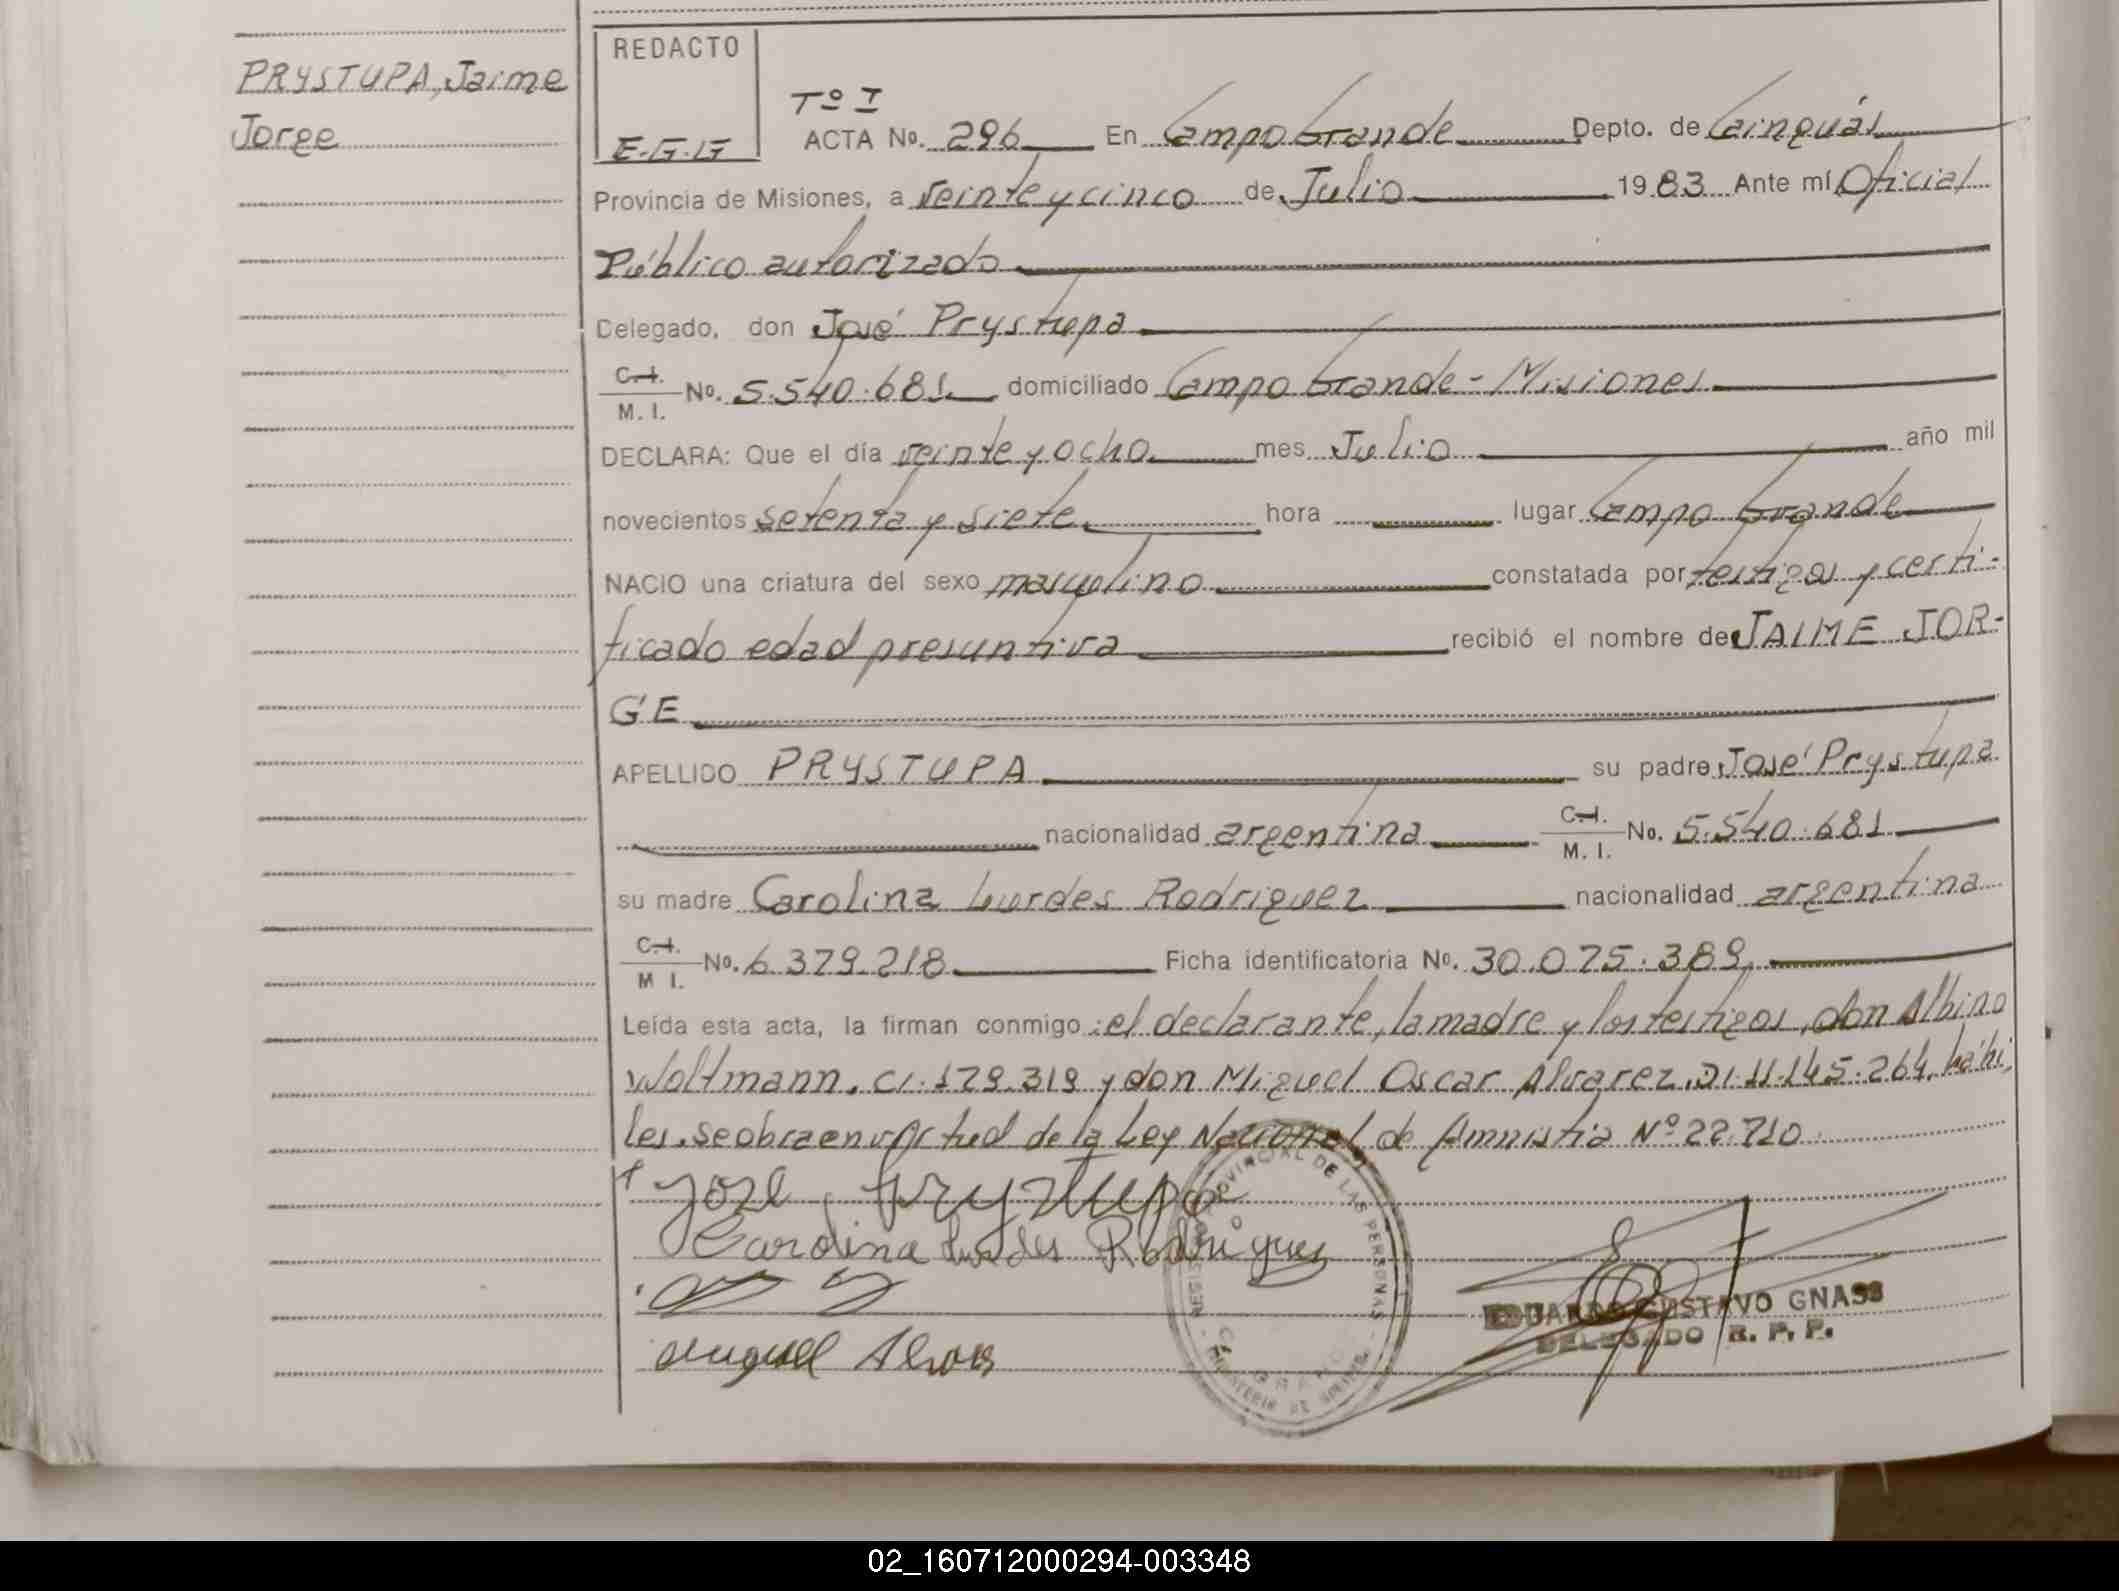 PRYSTUPA, Jaime
Jorge
REDACTO
E-G-G
Tº I
ACTA No. 296 En Campo Grande Depto. de Cainguás
Provincia de Misiones, a veinte y cinco de Julio 1983 Ante mí Oficial
Público autorizado
Delegado, don José Prystupa
C.I. M. I. No. 5.540.681 domiciliado Campo Grande - Misiones
DECLARA: Que el día veinte y ocho mes Julio año mil
novecientos setenta y siete hora lugar Campo Grande
NACIO una criatura del sexo masculino constatada por testigos y certi-
ficado edad presuntiva recibió el nombre de JAIME JOR-
GE
APELLIDO PRYSTUPA su padre José Prystupa
nacionalidad argentina C.I. M. I. No. 5.540.681
su madre Carolina Lurdes Rodriguez nacionalidad argentina
C.I. M I. No. 6.379.218 Ficha identificatoria No. 30.075.389
Leída esta acta, la firman conmigo: el declarante, la madre y los testigos, don Albino
Woltmann, CI. 179.319 y don Miguel Oscar Alvarez, DI 11.145.264, hábi-
les. Se obra en virtud de la Ley Nacional de Amnistía Nº 22.710.
José Prystupa
Carolina Lurdes Rodrigues
Miguel Alvares
PROVINCIAL DE LAS PERSONAS
MISIONES
EDUARDO GUSTAVO GNASS
DELEGADO R. P. P.
02_160712000294-003348